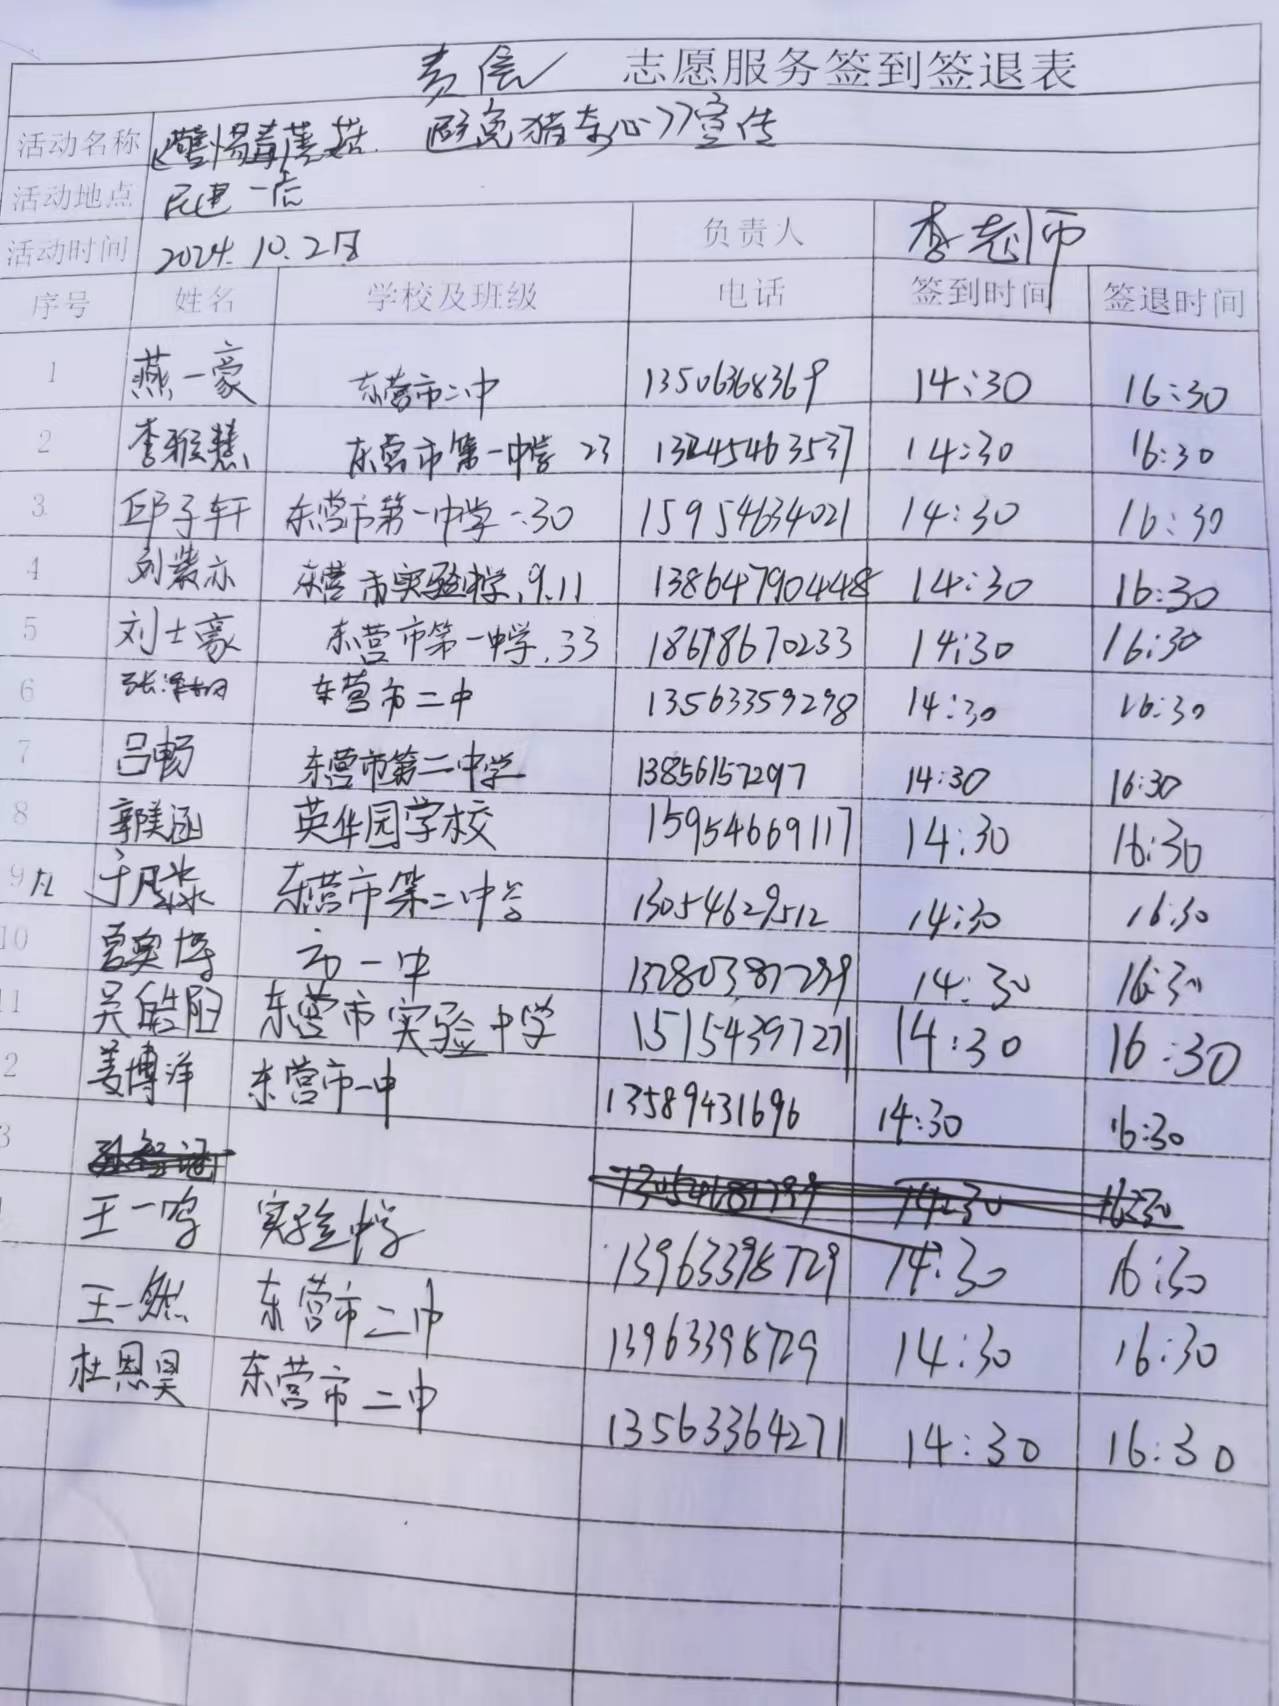 志愿服务签到签退表
活动名称 警惕毒蘑菇 避免猎奇心》宣传
活动地点 民建一店
活动时间 2024.10.2日 负责人 李老师
序号 姓名 学校及班级 电话 签到时间 签退时间
1 燕一豪 东营市二中 13506368369 14:30 16:30
2 李雅慧 东营市第一中学 23 13245463537 14:30 16:30
3 邱子轩 东营市第一中学 1.30 15954634021 14:30 16:30
4 刘裴亦 东营市实验中学,9.11 13864790448 14:30 16:30
5 刘士豪 东营市第一中学.33 18678670233 14:30 16:30
6 东营市二中 13563359298 14:30 16:30
7 吕畅 东营市第二中学 13856157297 14:30 16:30
8 郭美涵 英华园学校 15954669117 14:30 16:30
9 东营市第二中学 13054629512 14:30 16:30
10 市一中 14:30 16:30
11 吴皓阳 东营市实验中学 15154397271 14:30 16:30
2 姜博洋 东营市一中 13589431696 14:30 16:30
3
王一鸣 实验中学 13963398729 14:30 16:30
王一然 东营市二中 13963398729 14:30 16:30
杜恩昊 东营市二中 13563364271 14:30 16:30